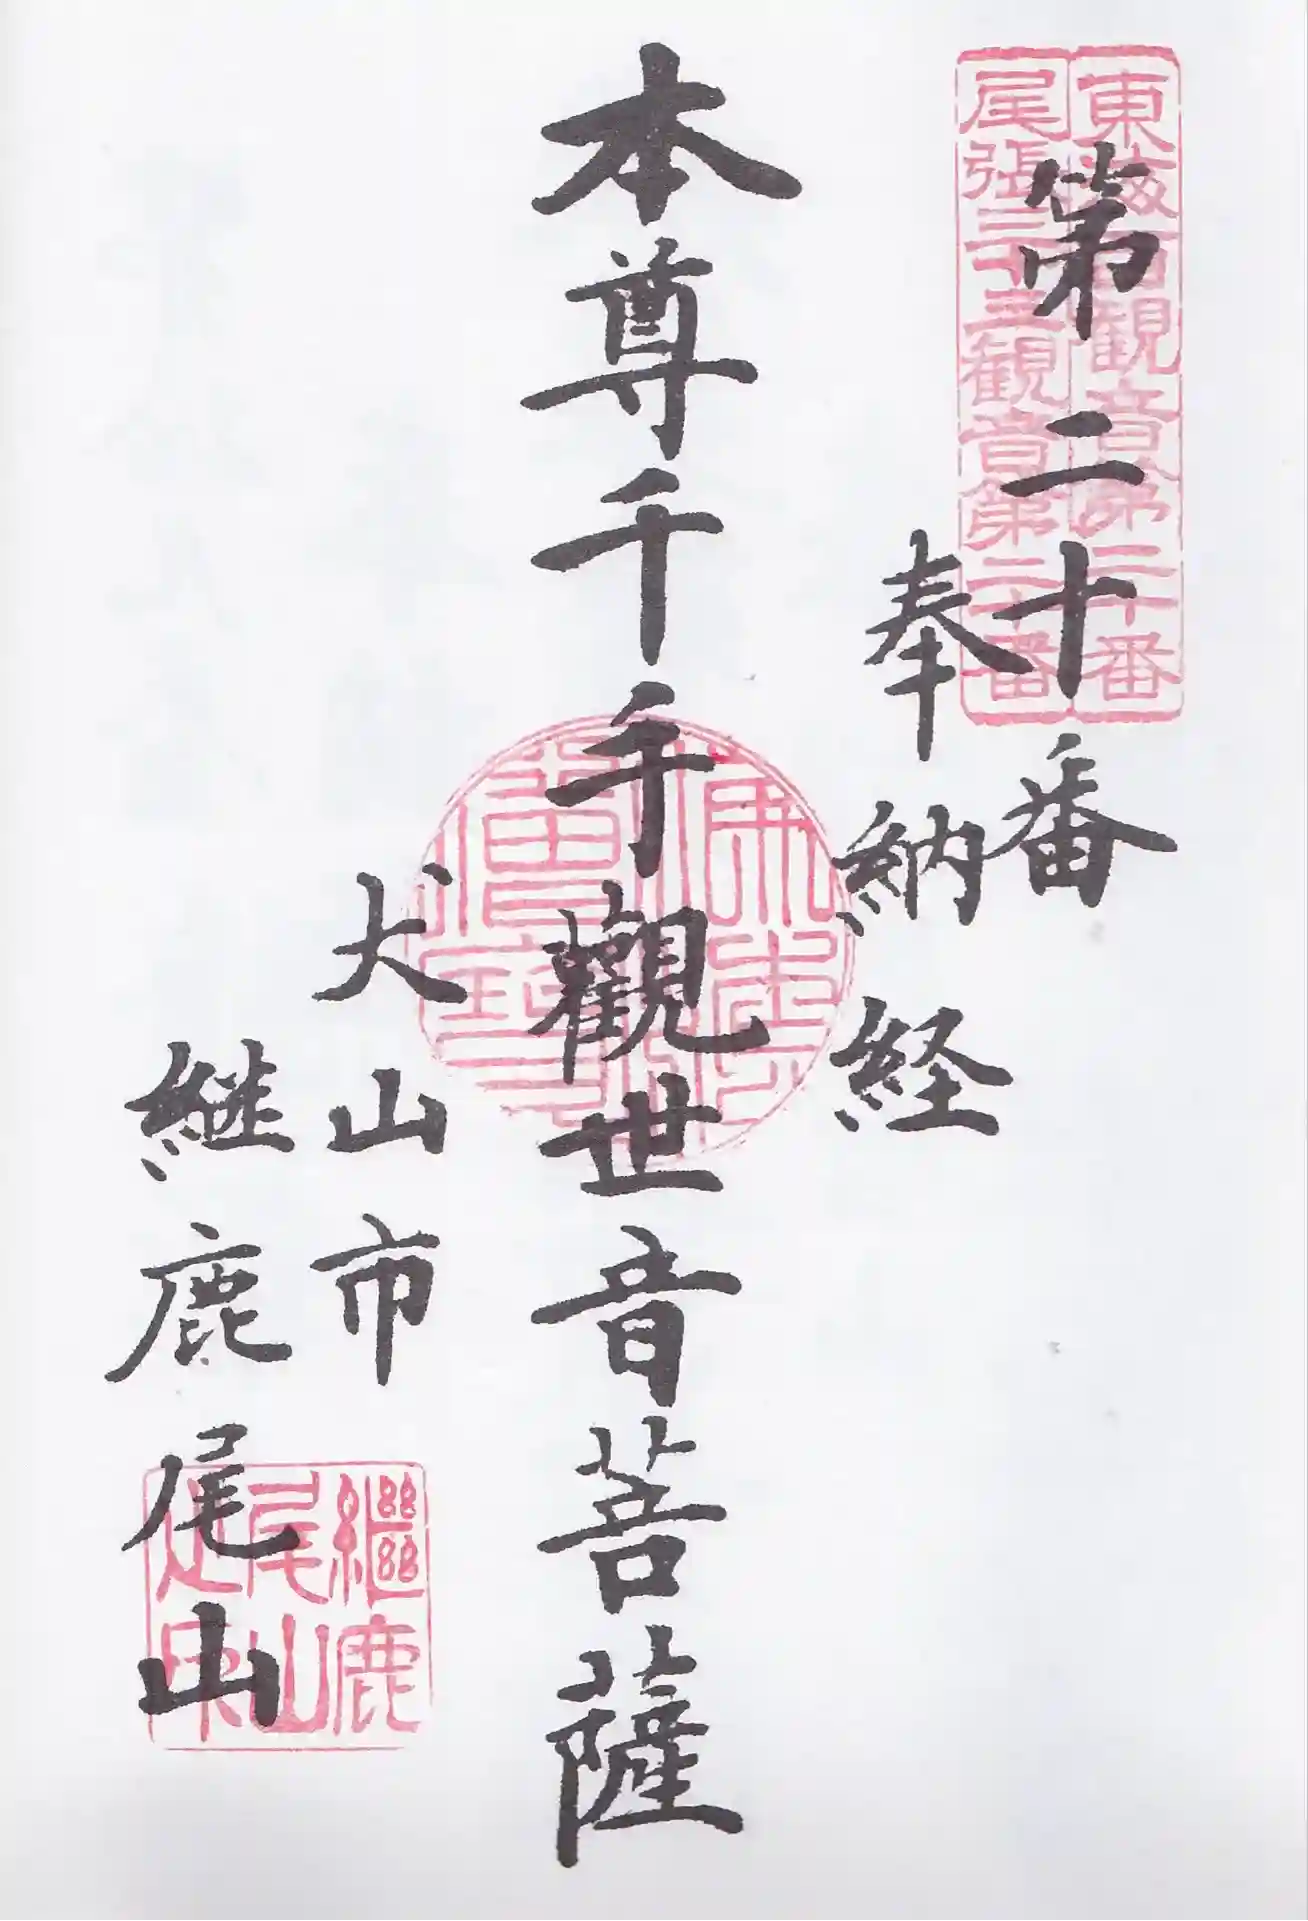 東海百観音第二十番
尾張三十三観音第二十番
第二十番
奉納経
本尊千手觀世音菩薩
犬山市
継鹿尾山
佛法僧寶
繼鹿
尾山